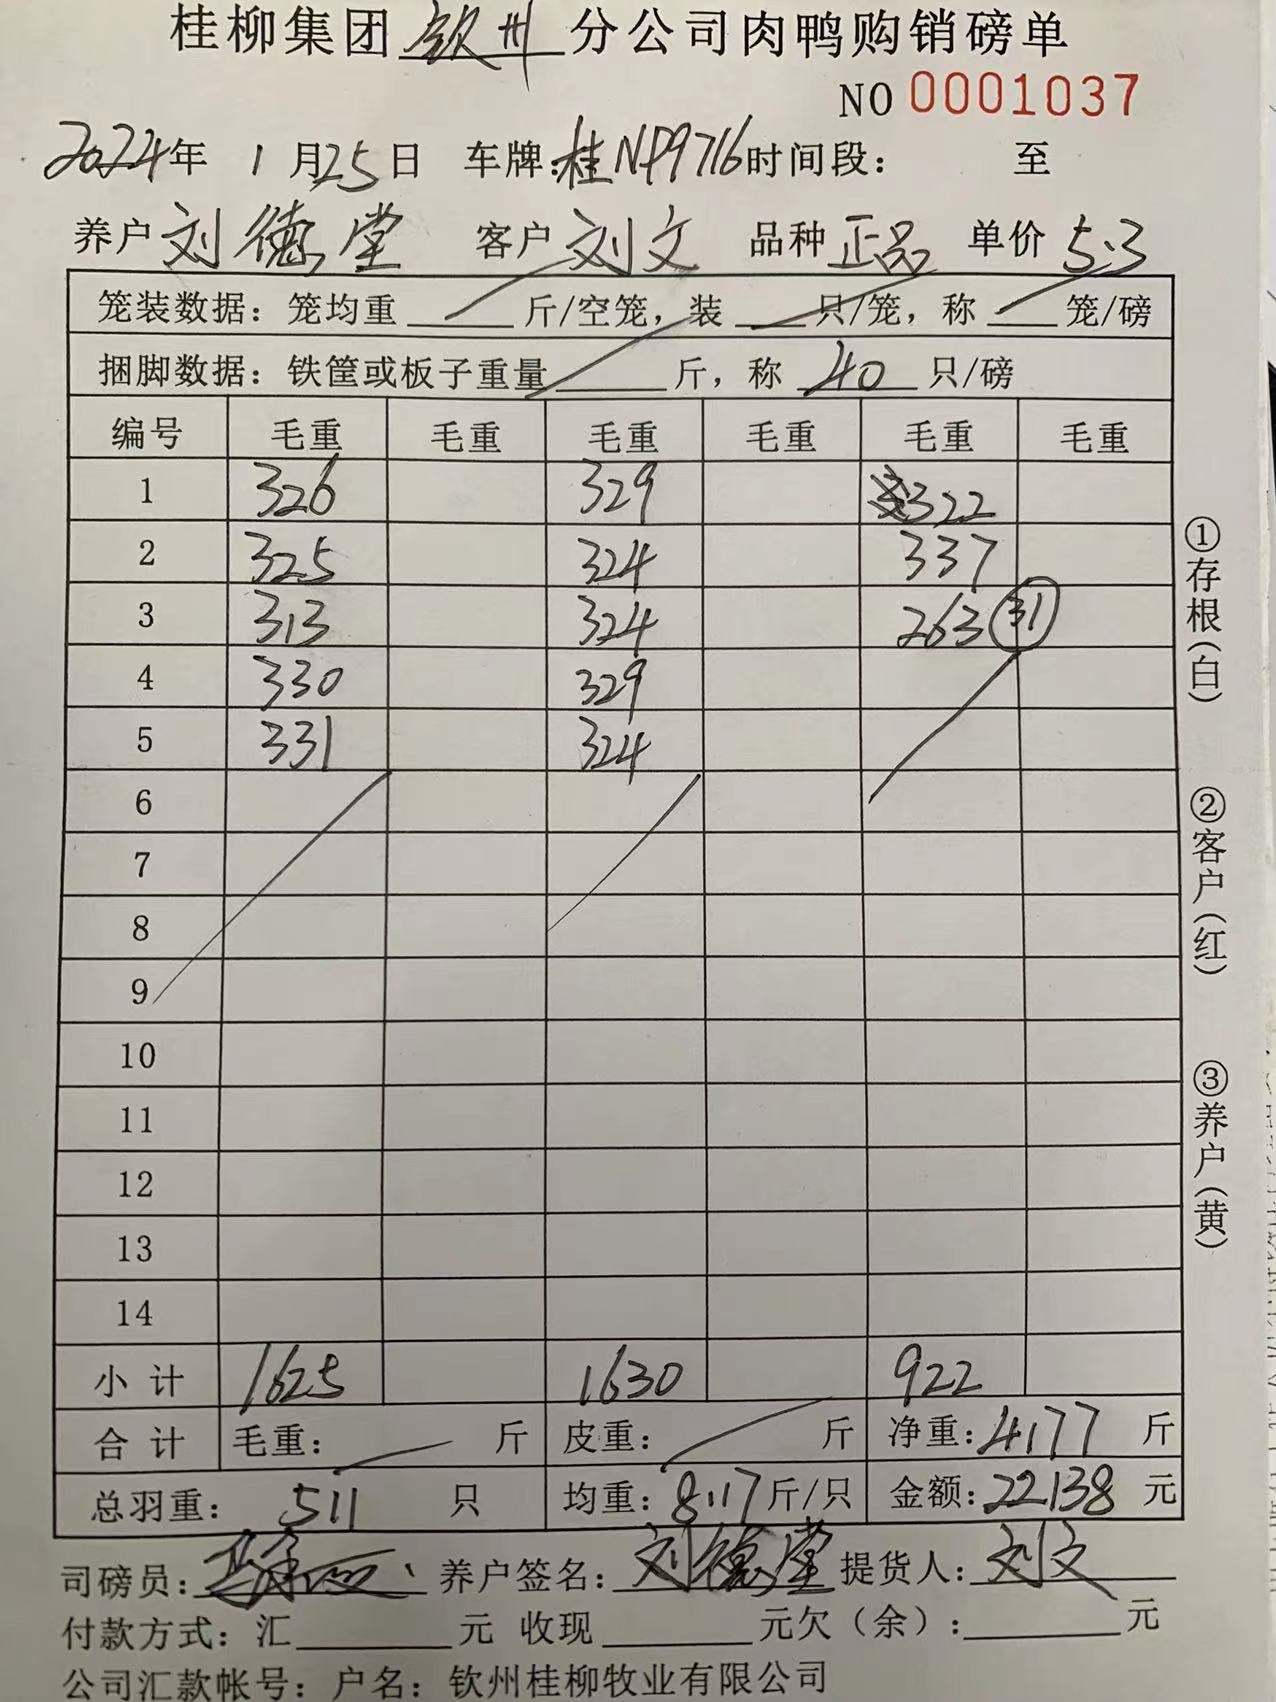 桂柳集团钦州分公司肉鸭购销磅单
NO 0001037
2024年 1月25日 车牌:桂NP9716时间段: 至
养户 刘德堂 客户 刘文 品种 正品 单价 5.3
笼装数据: 笼均重 斤/空笼, 装 只/笼, 称 笼/磅
捆脚数据: 铁筐或板子重量 斤, 称 40 只/磅
编号 毛重 毛重 毛重 毛重 毛重 毛重
1 326 329 322
2 325 324 337
3 313 324 263 31
4 330 329
5 331 324
6
7
8
9
10
11
12
13
14
小计 1625 1630 922
合计 毛重: 斤 皮重: 斤 净重:4177 斤
总羽重: 511 只 均重:8.17斤/只 金额:22138元
司磅员: 养户签名:刘德堂 提货人:刘文
付款方式: 汇 元 收现 元欠(余): 元
公司汇款帐号: 户名: 钦州桂柳牧业有限公司
①存根(白)
②客户(红)
③养户(黄)